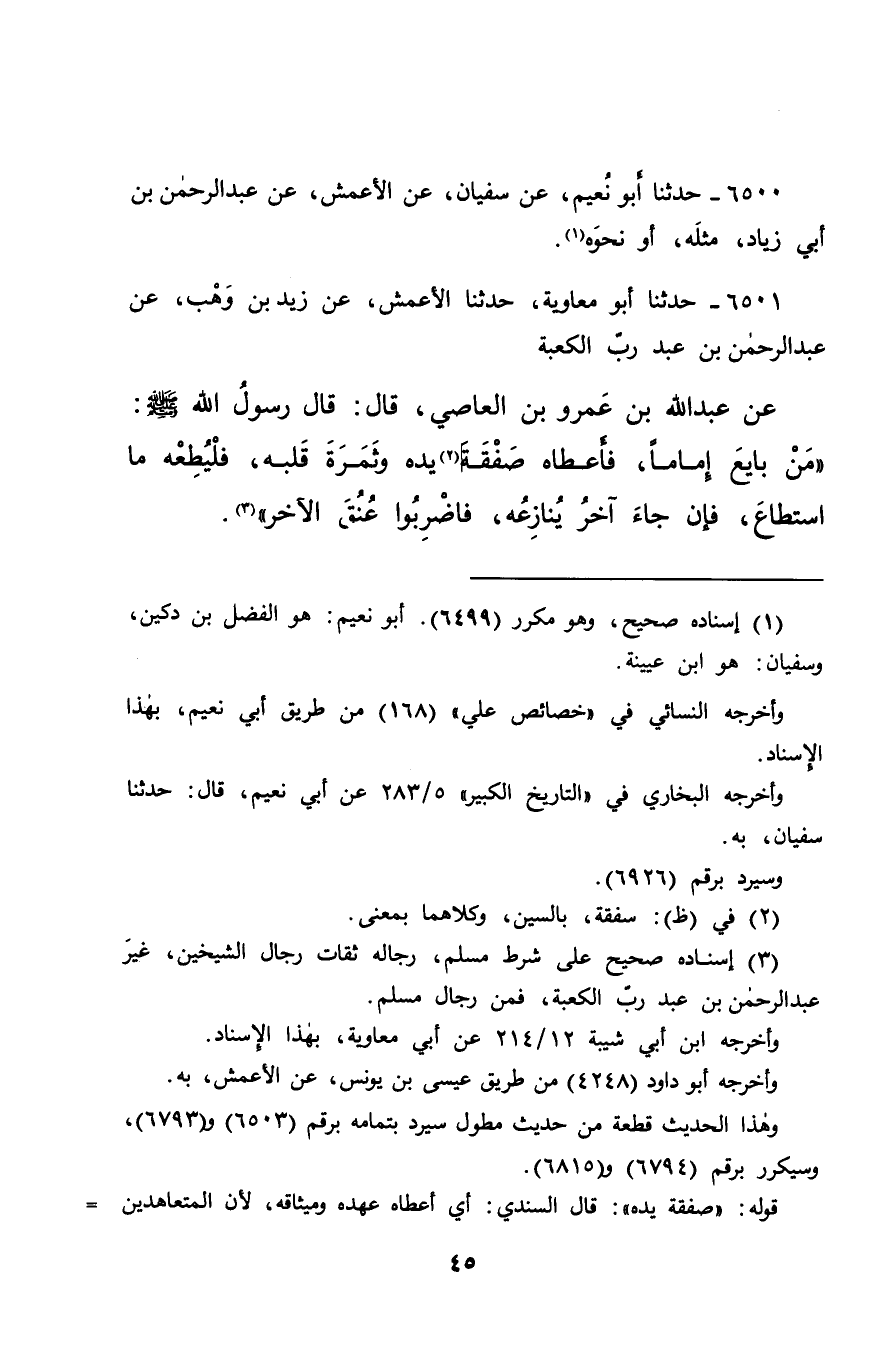 ٦٥٠٠ ـ حدثنا أَبو نُعيم، عن سفيان، عن الأعمش، عن عبدالرحمٰن بن
أبي زياد، مثلَه، أو نحوَه(١).
٦٥٠١ ـ حدثنا أبو معاوية، حدثنا الأعمش، عن زيد بن وَهْب، عن
عبدالرحمٰن بن عبد ربِّ الكعبة
عن عبدالله بن عَمرو بن العاصي، قال: قال رسولُ الله ﷺ:
«مَنْ بايعَ إِمـامـاً، فأَعـطاه صَفْقَـةَ(٢) يده وثَمَـرَةَ قَلبـه، فلْيُطِعْه ما
استطاعَ، فإن جاءَ آخرُ يُنازِعُه، فاضْرِبُوا عُنُقَ الآخر»(٣).
(١) إسناده صحيح، وهو مكرر (٦٤٩٩). أبو نعيم: هو الفضل بن دكين،
وسفيان: هو ابن عيينة.
وأخرجه النسائي في «خصائص علي» (١٦٨) من طريق أبي نعيم، بهٰذا
الإسناد.
وأخرجه البخاري في «التاريخ الكبير» ٢٨٣/٥ عن أبي نعيم، قال: حدثنا
سفيان، به.
وسيرد برقم (٦٩٢٦).
(٢) في (ظ): سفقة، بالسين، وكلاهما بمعنى.
(٣) إسنـاده صحيح على شرط مسلم، رجاله ثقات رجال الشيخين، غيرَ
عبدالرحمٰن بن عبد ربِّ الكعبة، فمن رجال مسلم.
وأخرجه ابن أبي شيبة ٢١٤/١٢ عن أبي معاوية، بهٰذا الإسناد.
وأخرجه أبو داود (٤٢٤٨) من طريق عيسى بن يونس، عن الأعمش، به.
وهٰذا الحديث قطعة من حديث مطول سيرد بتمامه برقم (٦٥٠٣) و(٦٧٩٣)،
وسيكرر برقم (٦٧٩٤) و(٦٨١٥).
قوله: «صفقة يده»: قال السندي: أي أعطاه عهده وميثاقه، لأن المتعاهدين =
٤٥